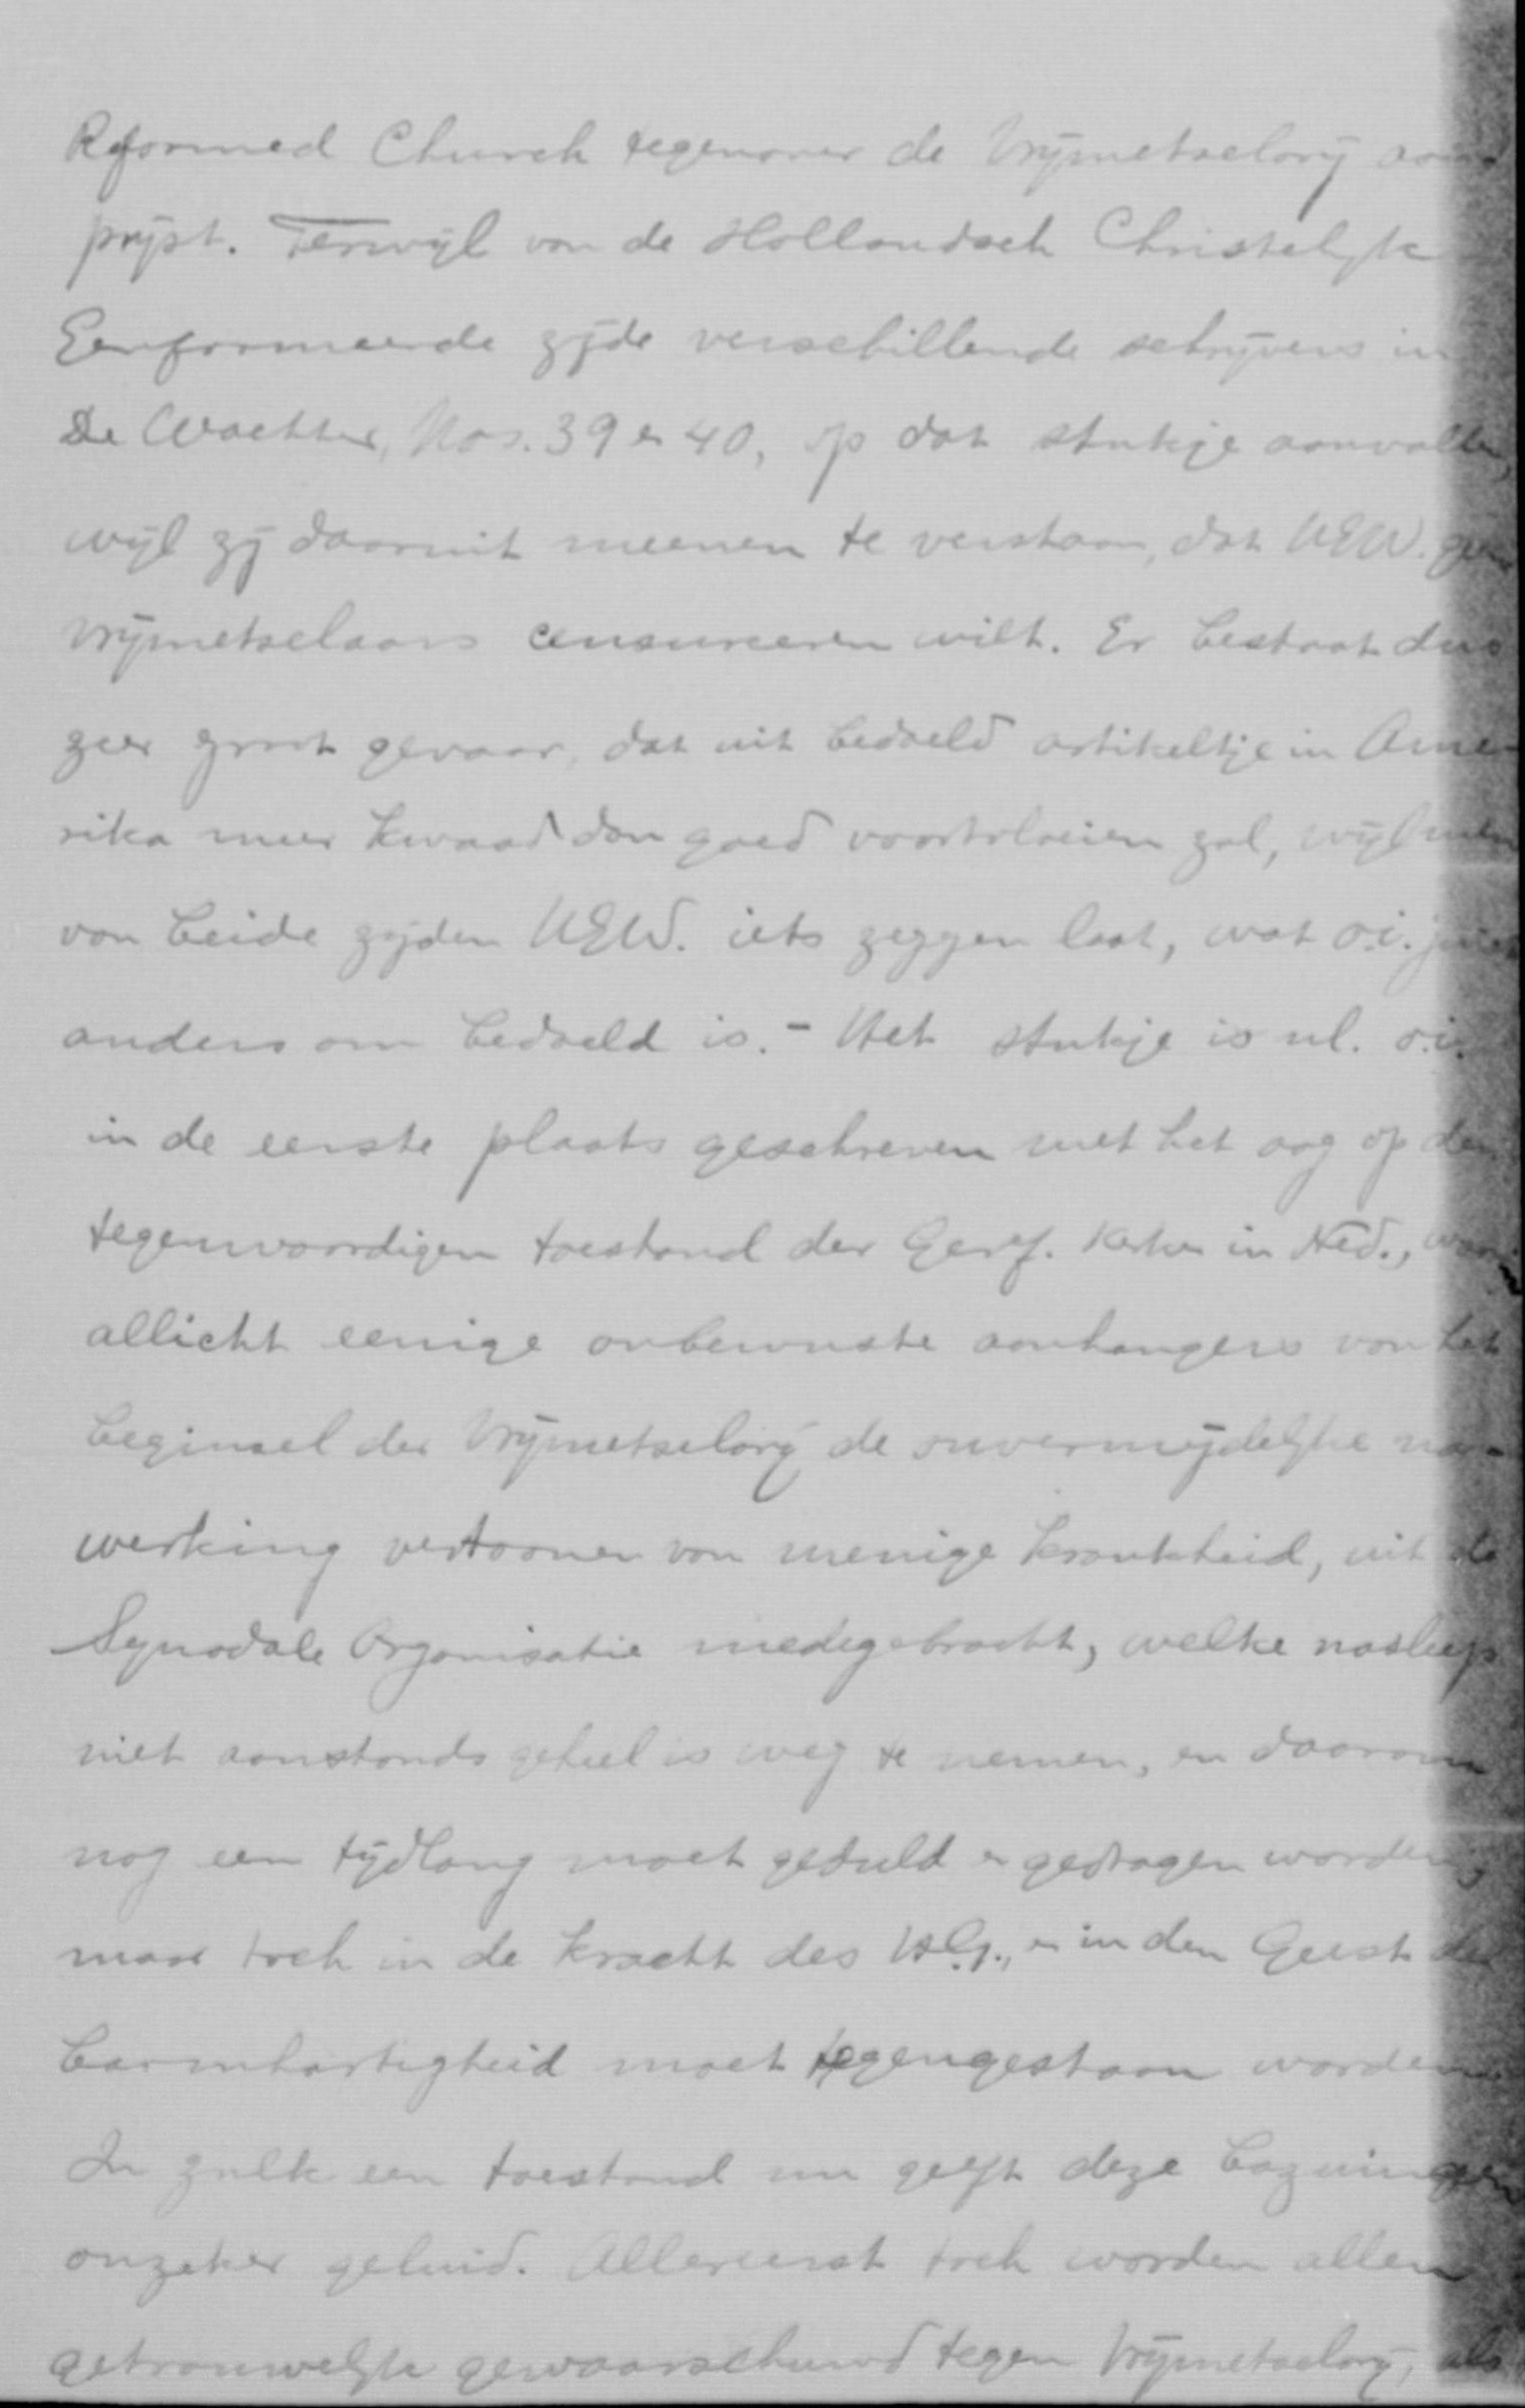 Reformed Church tegenover de Vrijmetselarij aan-
prijst. Terwijl van de Hollandsch Christelijk
Gereformeerde zijde verschillende schrijvers in
De Wachter, Nos. 39 en 40, op dat stukje aanvallen,
wijl zij daaruit meenen te verstaan, dat UEW. geen
vrijmetselaars censureeren wilt. Er bestaat dus
zeer groot gevaar, dat uit bedoeld artikeltje in Ame-
rika meer kwaad dan goed voortvloeien zal, wijl men
van beide zijden UEW. iets zeggen laat, wat o.i. juist
andersom bedoeld is. - Het stukje is nl. o.i.
in de eerste plaats geschreven met het oog op den
tegenwoordigen toestand der Geref. Kerken in Ned., waar
allicht eenige onbewuste aanhangers van het
beginsel der Vrijmetselarij de onvermijdelijke na-
werking vertoonen van menige krankheid, uit de
Synodale Organisatie medegebracht, welke nasleep
niet aanstonds geheel is weg te nemen, en daarom
nog een tijdlang moet geduld en gedragen worden,
maar toch in de kracht des H.G., en in den Geest der
barmhartigheid moet tegengestaan worden.
In zulk een toestand nu geeft deze bazuin geen
onzeker geluid. Allereerst toch worden allen
getrouwelijk gewaarschuwd tegen Vrijmetselarij, als